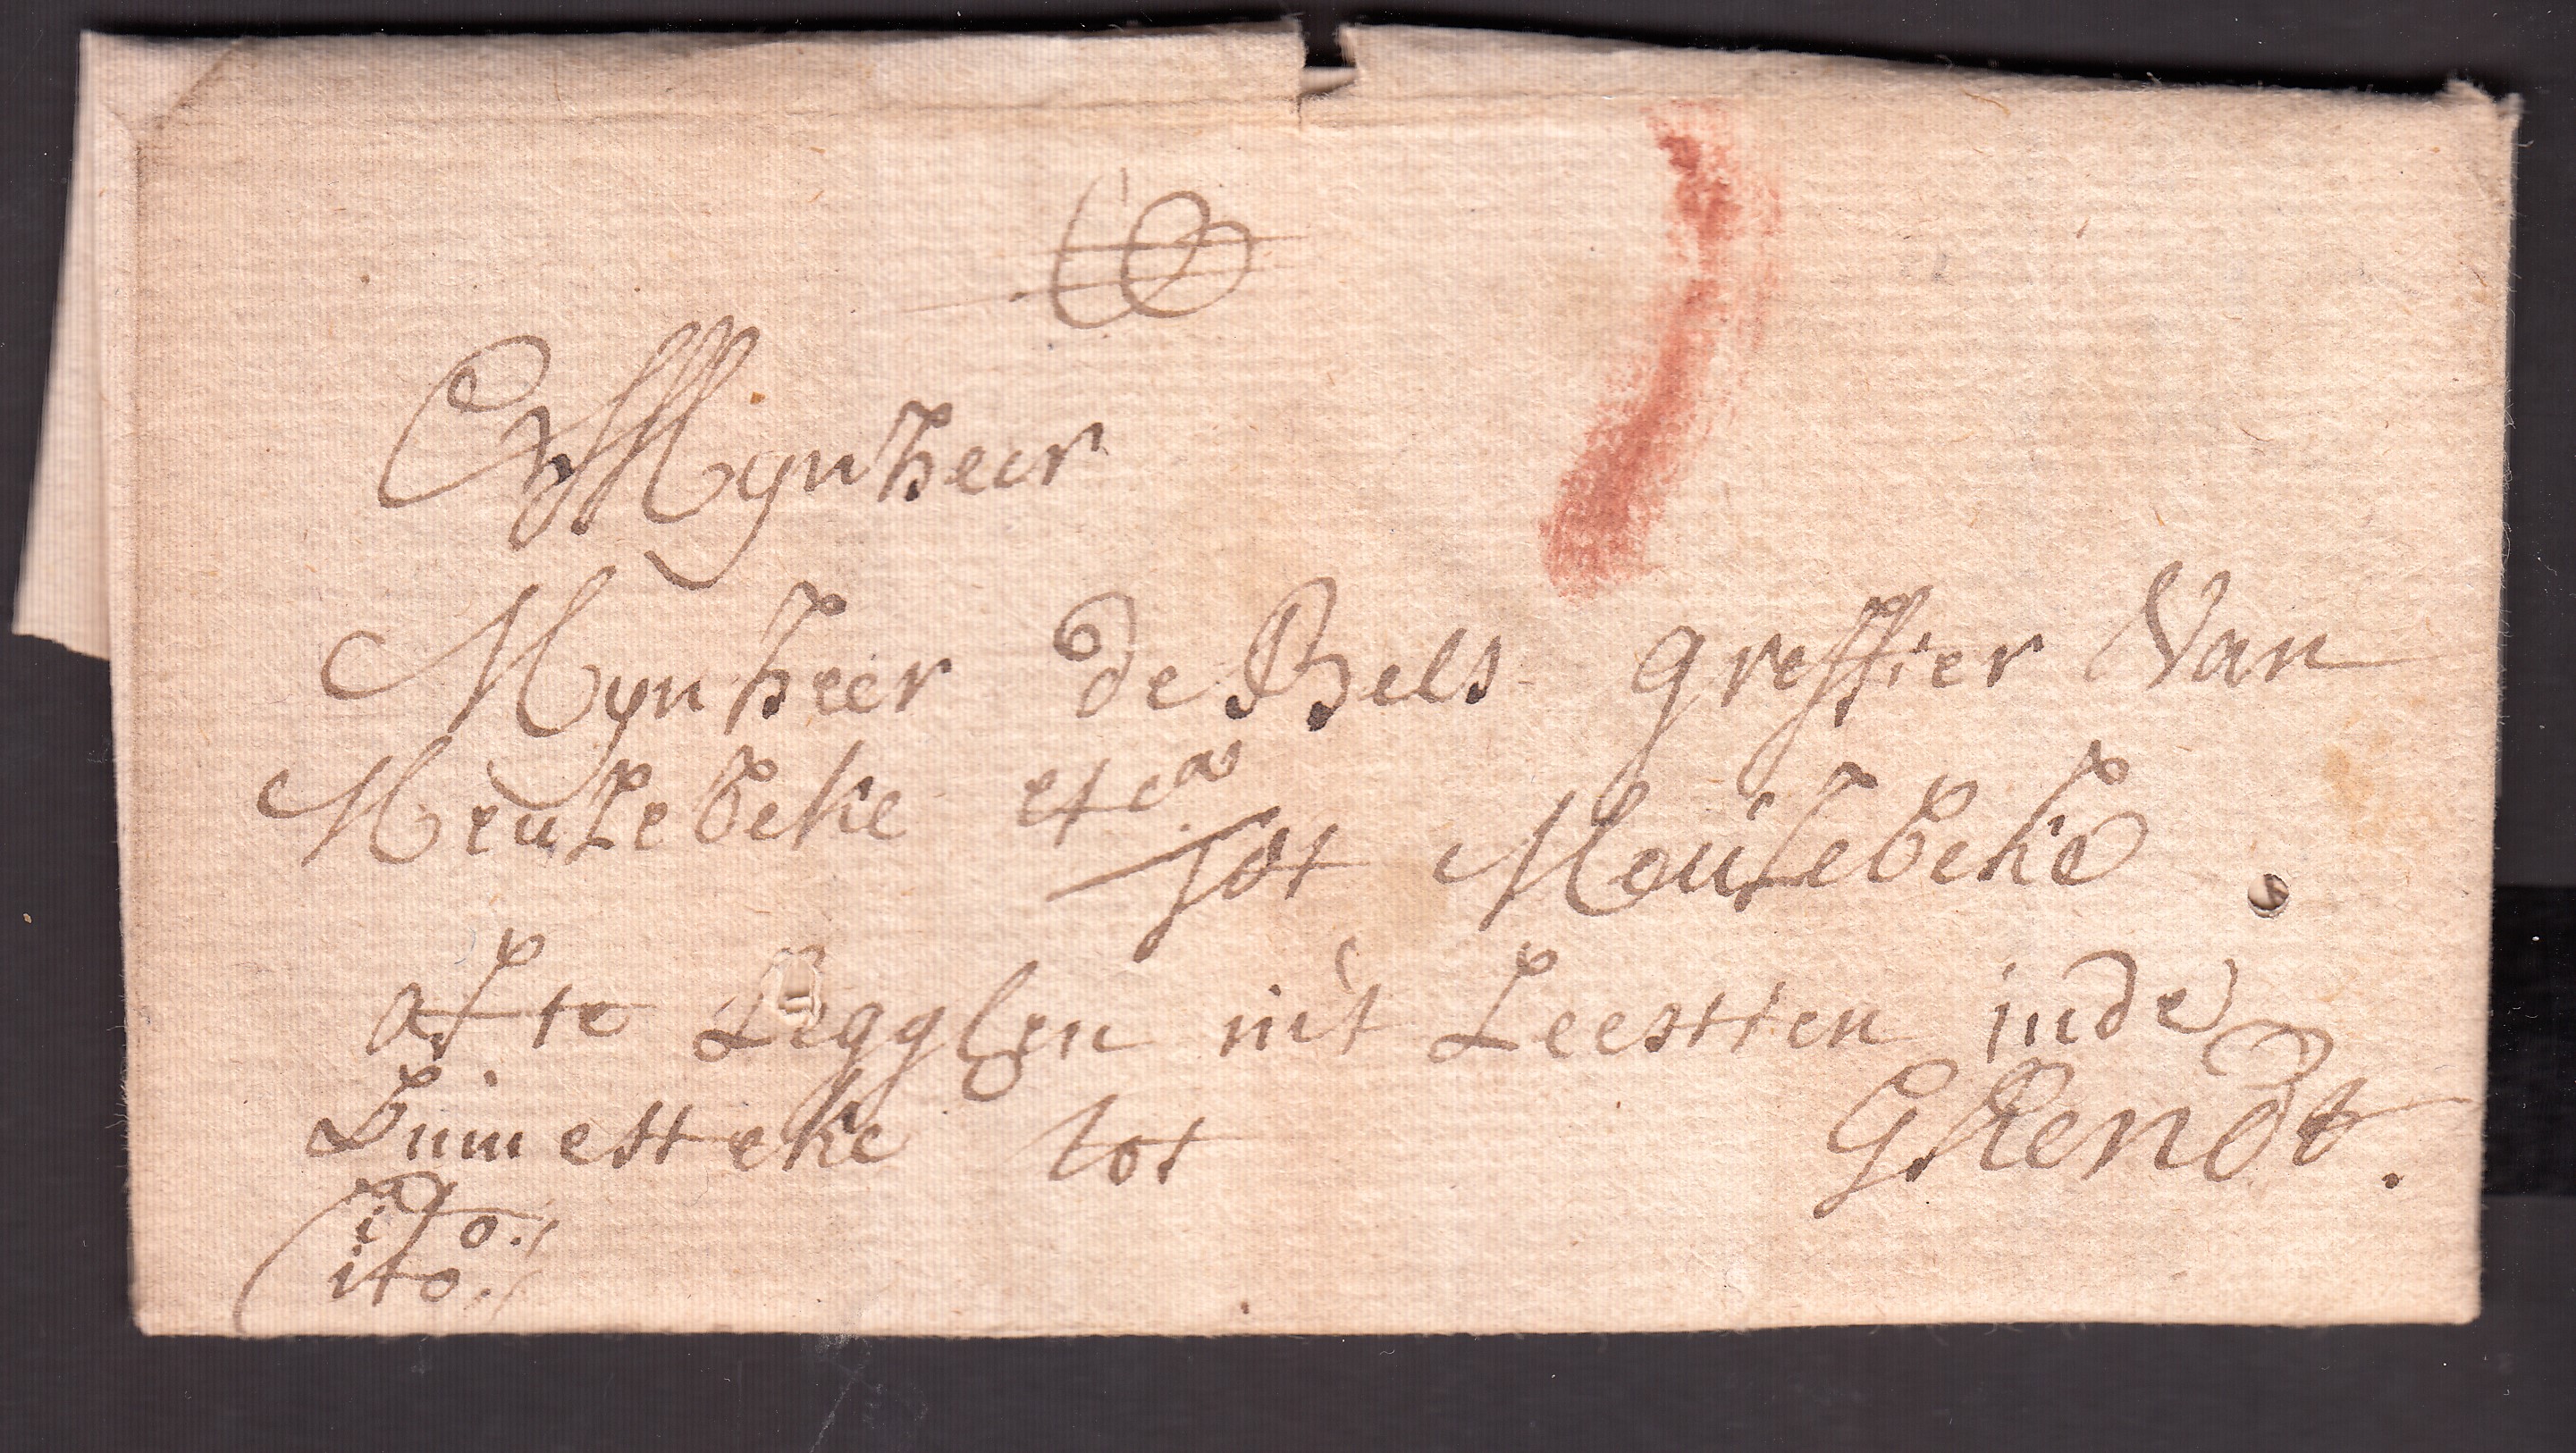 Mynheer
Mynheer de Bels greffier Van
Meulebeke etca
Tot Meulebeke
af te Leggen in't Leestien inde
tot Ghendt.
ito
ito